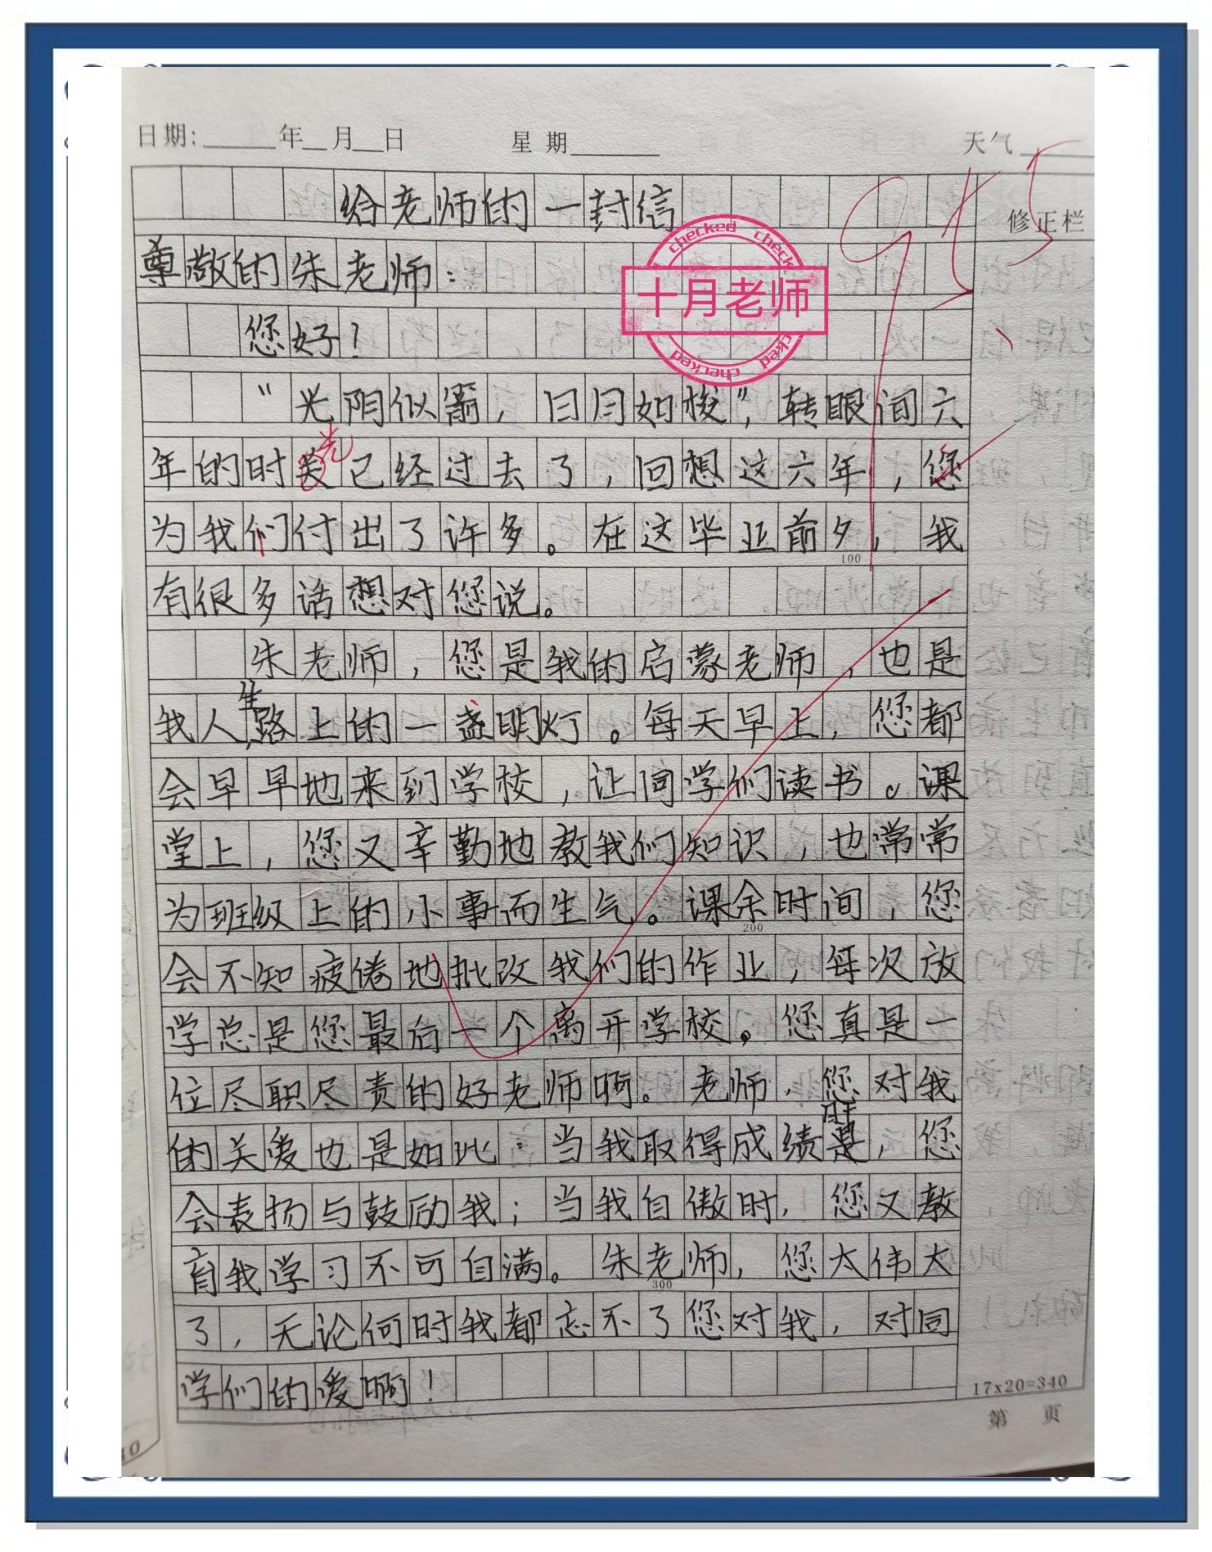 日期:____年__月__日 星期____ 天气____
给老师的一封信
修正栏
95
checked checked
十月老师
checked checked
尊敬的朱老师:
您好!
“光阴似箭,日月如梭”,转眼间六
年的时光已经过去了,回想这六年,您
为我们付出了许多。在这毕业前夕,我
100
有很多话想对您说。
朱老师,您是我的启蒙老师,也是
我人生路上的一盏明灯。每天早上,您都
会早早地来到学校,让同学们读书。课
堂上,您又辛勤地教我们知识,也常常
为班级上的小事而生气。课余时间,您
200
会不知疲倦地批改我们的作业,每次放
学总是您最后一个离开学校。您真是一
位尽职尽责的好老师啊。老师,您对我
的关爱也是如此:当我取得成绩时,您
会表扬与鼓励我;当我自傲时,您又教
育我学习不可自满。朱老师,您太伟大
300
了,无论何时我都忘不了您对我,对同
学们的爱啊!
17x20=340
第 页